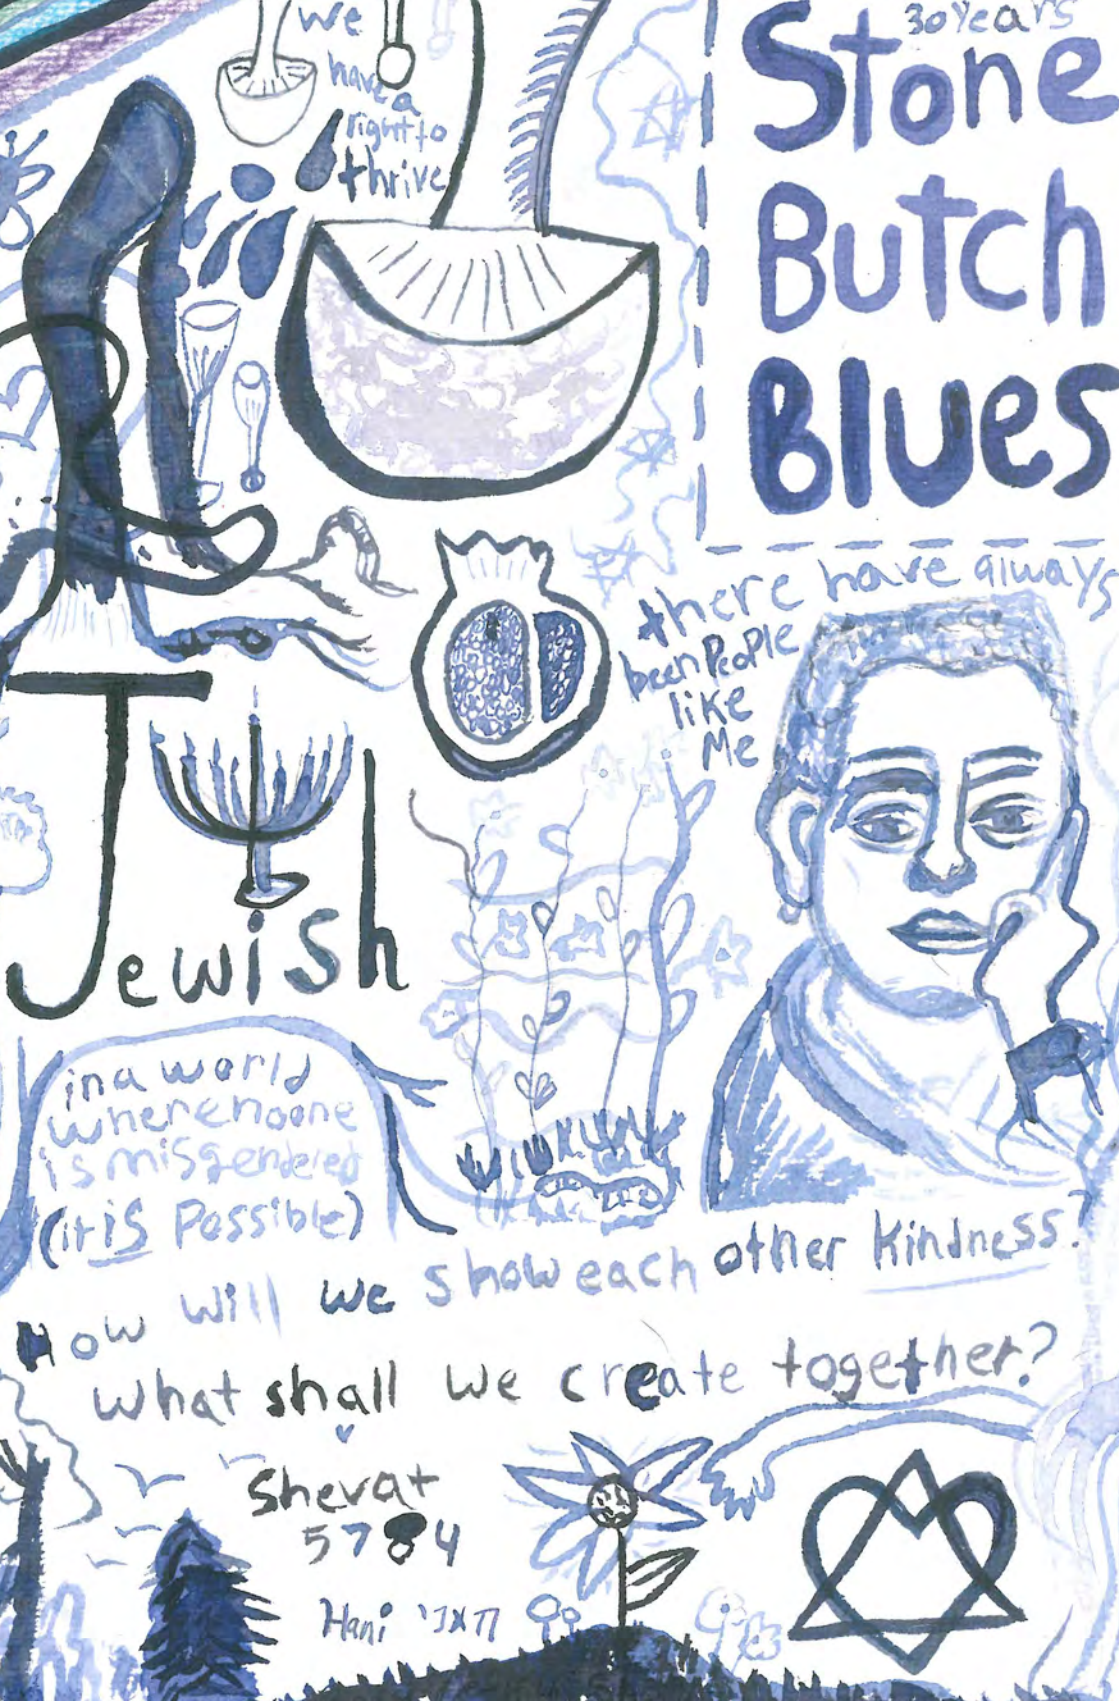 We
have a
right to
thrive
30 Years
Stone
Butch
Blues
there have always
been People
like
Me
Jewish
in a world
where no one
is misgendered
(it is Possible)
How will we show each other kindness?
What shall we create together?
Shevat
5784
Hani האני